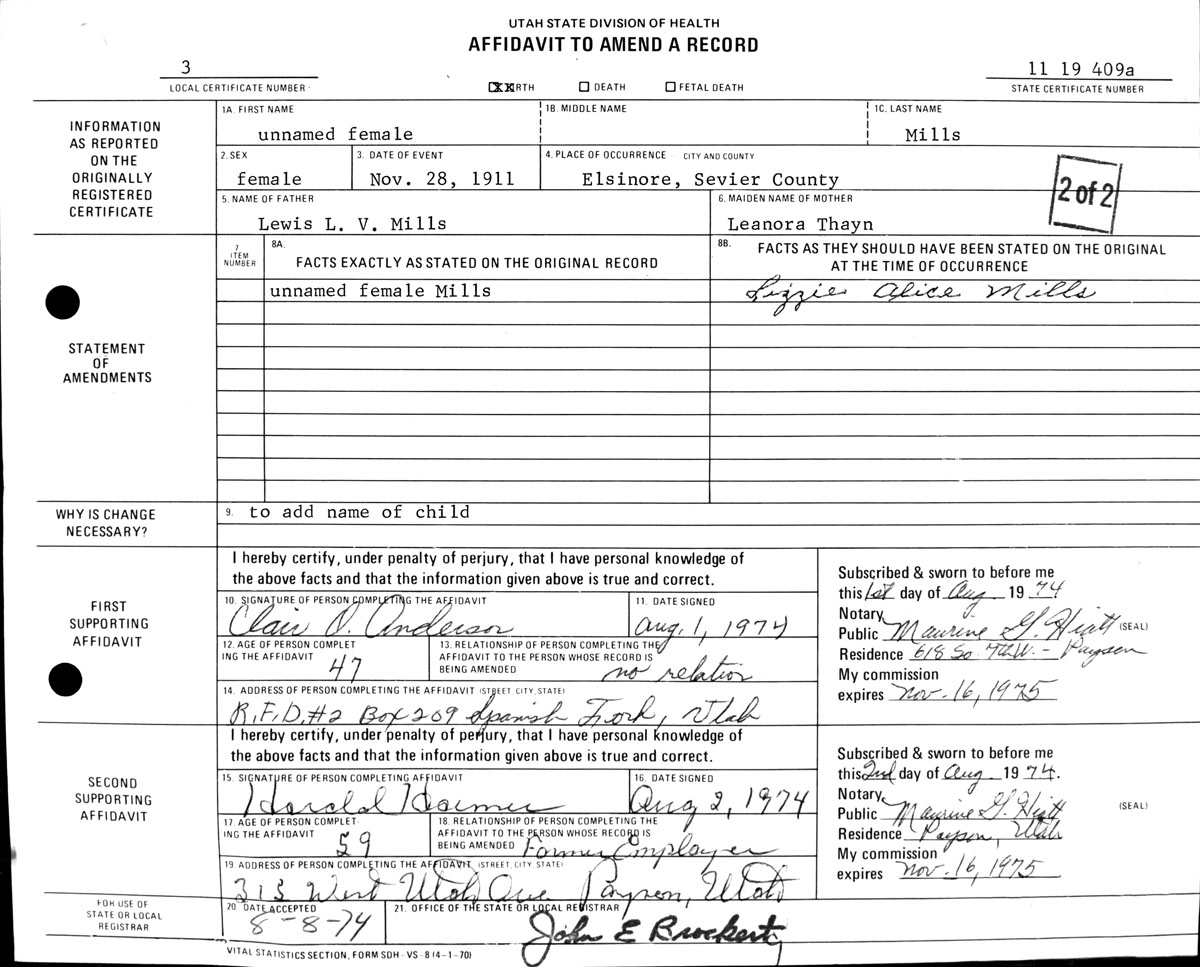 UTAH STATE DIVISION OF HEALTH
AFFIDAVIT TO AMEND A RECORD
3
LOCAL CERTIFICATE NUMBER
XXRTH
DEATH
FETAL DEATH
11 19 409a
STATE CERTIFICATE NUMBER
INFORMATION
AS REPORTED
ON THE
ORIGINALLY
REGISTERED
CERTIFICATE
1A. FIRST NAME
unnamed female
1B. MIDDLE NAME
1C. LAST NAME
Mills
2. SEX
female
3. DATE OF EVENT
Nov. 28, 1911
4. PLACE OF OCCURRENCE CITY AND COUNTY
Elsinore, Sevier County
2 of 2
5. NAME OF FATHER
Lewis L. V. Mills
6. MAIDEN NAME OF MOTHER
Leanora Thayn
STATEMENT
OF
AMENDMENTS
7
ITEM
NUMBER
8A.
FACTS EXACTLY AS STATED ON THE ORIGINAL RECORD
8B.
FACTS AS THEY SHOULD HAVE BEEN STATED ON THE ORIGINAL
AT THE TIME OF OCCURRENCE
unnamed female Mills
Lizzie Alice Mills
WHY IS CHANGE
NECESSARY?
9. to add name of child
FIRST
SUPPORTING
AFFIDAVIT
I hereby certify, under penalty of perjury, that I have personal knowledge of
the above facts and that the information given above is true and correct.
10. SIGNATURE OF PERSON COMPLETING THE AFFIDAVIT
Clair O. Anderson
11. DATE SIGNED
Aug. 1, 1974
12. AGE OF PERSON COMPLET
ING THE AFFIDAVIT
47
13. RELATIONSHIP OF PERSON COMPLETING THE
AFFIDAVIT TO THE PERSON WHOSE RECORD IS
BEING AMENDED
no relation
14. ADDRESS OF PERSON COMPLETING THE AFFIDAVIT (STREET, CITY, STATE)
R.F.D. #2 Box 209 Spanish Fork, Utah
Subscribed & sworn to before me
this 1st day of Aug. 19 74
Notary
Public Maurine G. Hiatt (SEAL)
Residence 618 So. 7th W. - Payson
My commission
expires Nov. 16, 1975
SECOND
SUPPORTING
AFFIDAVIT
I hereby certify, under penalty of perjury, that I have personal knowledge of
the above facts and that the information given above is true and correct.
15. SIGNATURE OF PERSON COMPLETING AFFIDAVIT
Harold
16. DATE SIGNED
Aug 2, 1974
17. AGE OF PERSON COMPLET
ING THE AFFIDAVIT
59
18. RELATIONSHIP OF PERSON COMPLETING THE
AFFIDAVIT TO THE PERSON WHOSE RECORD IS
BEING AMENDED
Former Employer
19. ADDRESS OF PERSON COMPLETING THE AFFIDAVIT (STREET, CITY, STATE)
313 West Utah Ave Payson, Utah
Subscribed & sworn to before me
this 2nd day of Aug. 19 74.
Notary
Public Maurine G. Hiatt
(SEAL)
Residence Payson, Utah
My commission
expires Nov. 16, 1975
FOR USE OF
STATE OR LOCAL
REGISTRAR
20. DATE ACCEPTED
8-8-74
21. OFFICE OF THE STATE OR LOCAL REGISTRAR
John E Brockert
VITAL STATISTICS SECTION, FORM SDH-VS-8 (4-1-70)